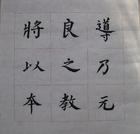 導乃元
良之教
將以本